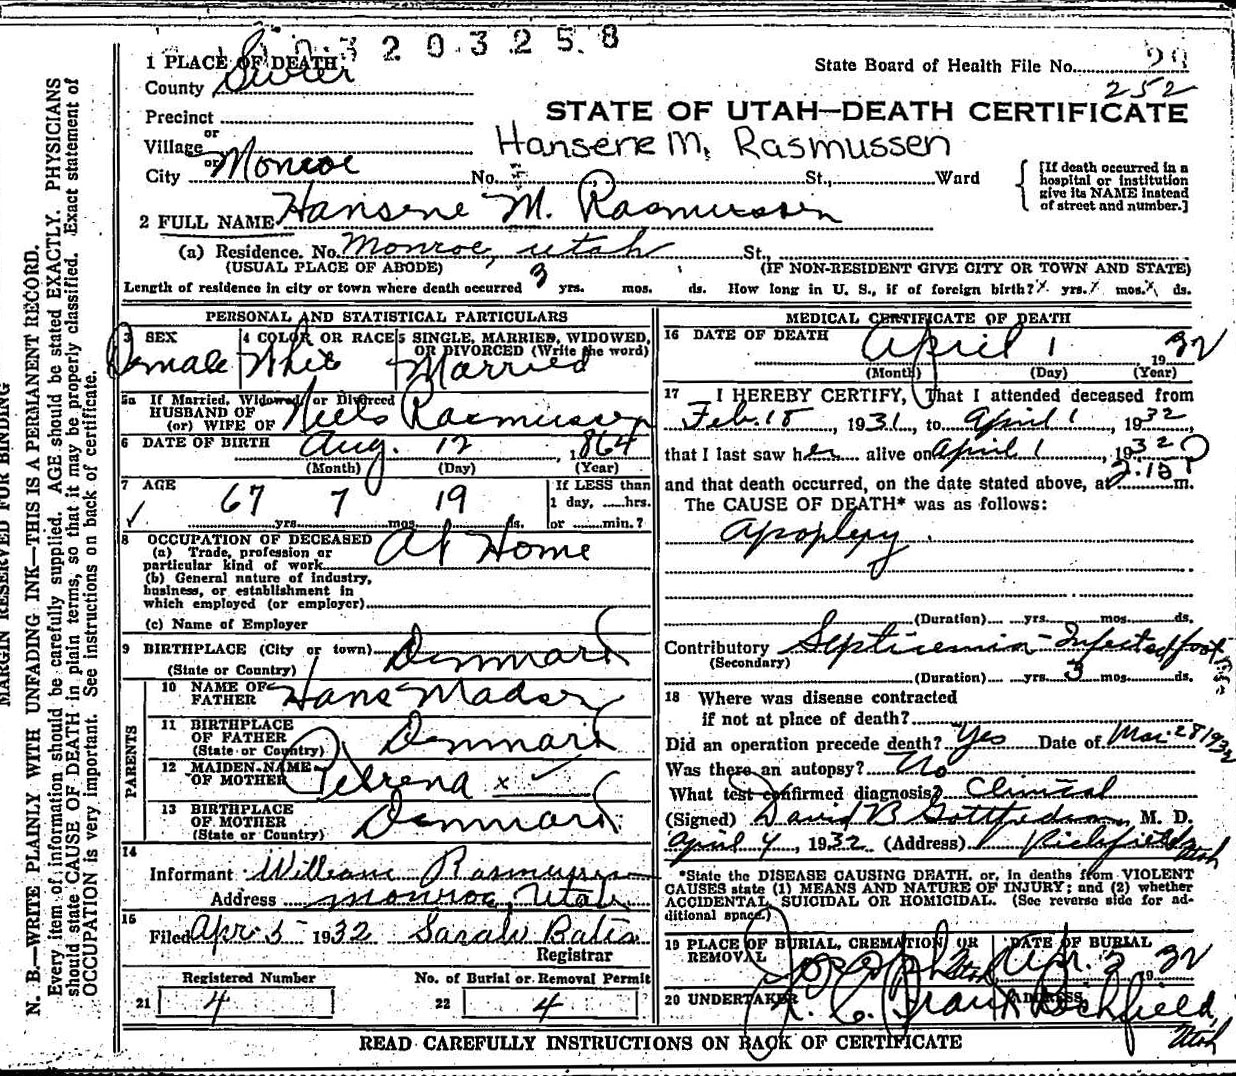 0 3 2 0 3 2 5 8
1 PLACE OF DEATH
State Board of Health File No. 29
County Sevier
252
STATE OF UTAH—DEATH CERTIFICATE
Precinct
or
Village
Hansene M. Rasmussen
or
City Monroe No. St., Ward
[If death occurred in a hospital or institution give its NAME instead of street and number.]
2 FULL NAME Hansene M. Rasmussen
(a) Residence. No. Monroe, Utah St.,
(USUAL PLACE OF ABODE) (IF NON-RESIDENT GIVE CITY OR TOWN AND STATE)
Length of residence in city or town where death occurred 3 yrs. mos. ds. How long in U. S., if of foreign birth? x yrs. x mos. x ds.
PERSONAL AND STATISTICAL PARTICULARS
3 SEX 4 COLOR OR RACE 5 SINGLE, MARRIED, WIDOWED,
OR DIVORCED (Write the word)
Female White Married
5a If Married, Widowed, or Divorced
HUSBAND OF
(or) WIFE OF Niels Rasmussen
6 DATE OF BIRTH Aug. 12, 1864
(Month) (Day) (Year)
7 AGE
67 yrs. 7 mos. 19 ds.
If LESS than
1 day, ......hrs.
or ......min.?
8 OCCUPATION OF DECEASED
(a) Trade, profession or
particular kind of work At Home
(b) General nature of industry,
business, or establishment in
which employed (or employer)
(c) Name of Employer
9 BIRTHPLACE (City or town) Denmark
(State or Country)
PARENTS
10 NAME OF
FATHER Hans Madsen
11 BIRTHPLACE
OF FATHER Denmark
(State or Country)
12 MAIDEN NAME
OF MOTHER Petrena x
13 BIRTHPLACE
OF MOTHER Denmark
(State or Country)
14
Informant William Rasmussen
Address Monroe, Utah
15
Filed Apr 5 1932 Sarah Bates
Registrar
Registered Number No. of Burial or Removal Permit
21 4 22 4
MEDICAL CERTIFICATE OF DEATH
16 DATE OF DEATH April 1 1932
(Month) (Day) (Year)
17 I HEREBY CERTIFY, That I attended deceased from
Feb. 15, 1931, to April 1, 1932
that I last saw her alive on April 1, 1932
and that death occurred, on the date stated above, at 2:15 P m.
The CAUSE OF DEATH* was as follows:
Apoplexy.
(Duration) yrs. mos. ds.
Contributory Septicemia - Infected foot
(Secondary)
(Duration) yrs. 3 mos. ds.
18 Where was disease contracted
if not at place of death?
Did an operation precede death? Yes Date of Mar. 28 1932
Was there an autopsy? No
What test confirmed diagnosis? Clinical
(Signed) David B Gottfredson, M. D.
April 4, 1932 (Address) Richfield Utah
*State the DISEASE CAUSING DEATH, or, in deaths from VIOLENT
CAUSES state (1) MEANS AND NATURE OF INJURY; and (2) whether
ACCIDENTAL, SUICIDAL OR HOMICIDAL. (See reverse side for ad-
ditional space.)
19 PLACE OF BURIAL, CREMATION, OR
REMOVAL
DATE OF BURIAL
Joseph Utah Apr. 3 1932
20 UNDERTAKER ADDRESS
Richfield,
Utah
READ CAREFULLY INSTRUCTIONS ON BACK OF CERTIFICATE
MARGIN RESERVED FOR BINDING
N. B.—WRITE PLAINLY WITH UNFADING INK—THIS IS A PERMANENT RECORD.
Every item of information should be carefully supplied. AGE should be stated EXACTLY. PHYSICIANS
should state CAUSE OF DEATH in plain terms, so that it may be properly classified. Exact statement of
OCCUPATION is very important. See instructions on back of certificate.